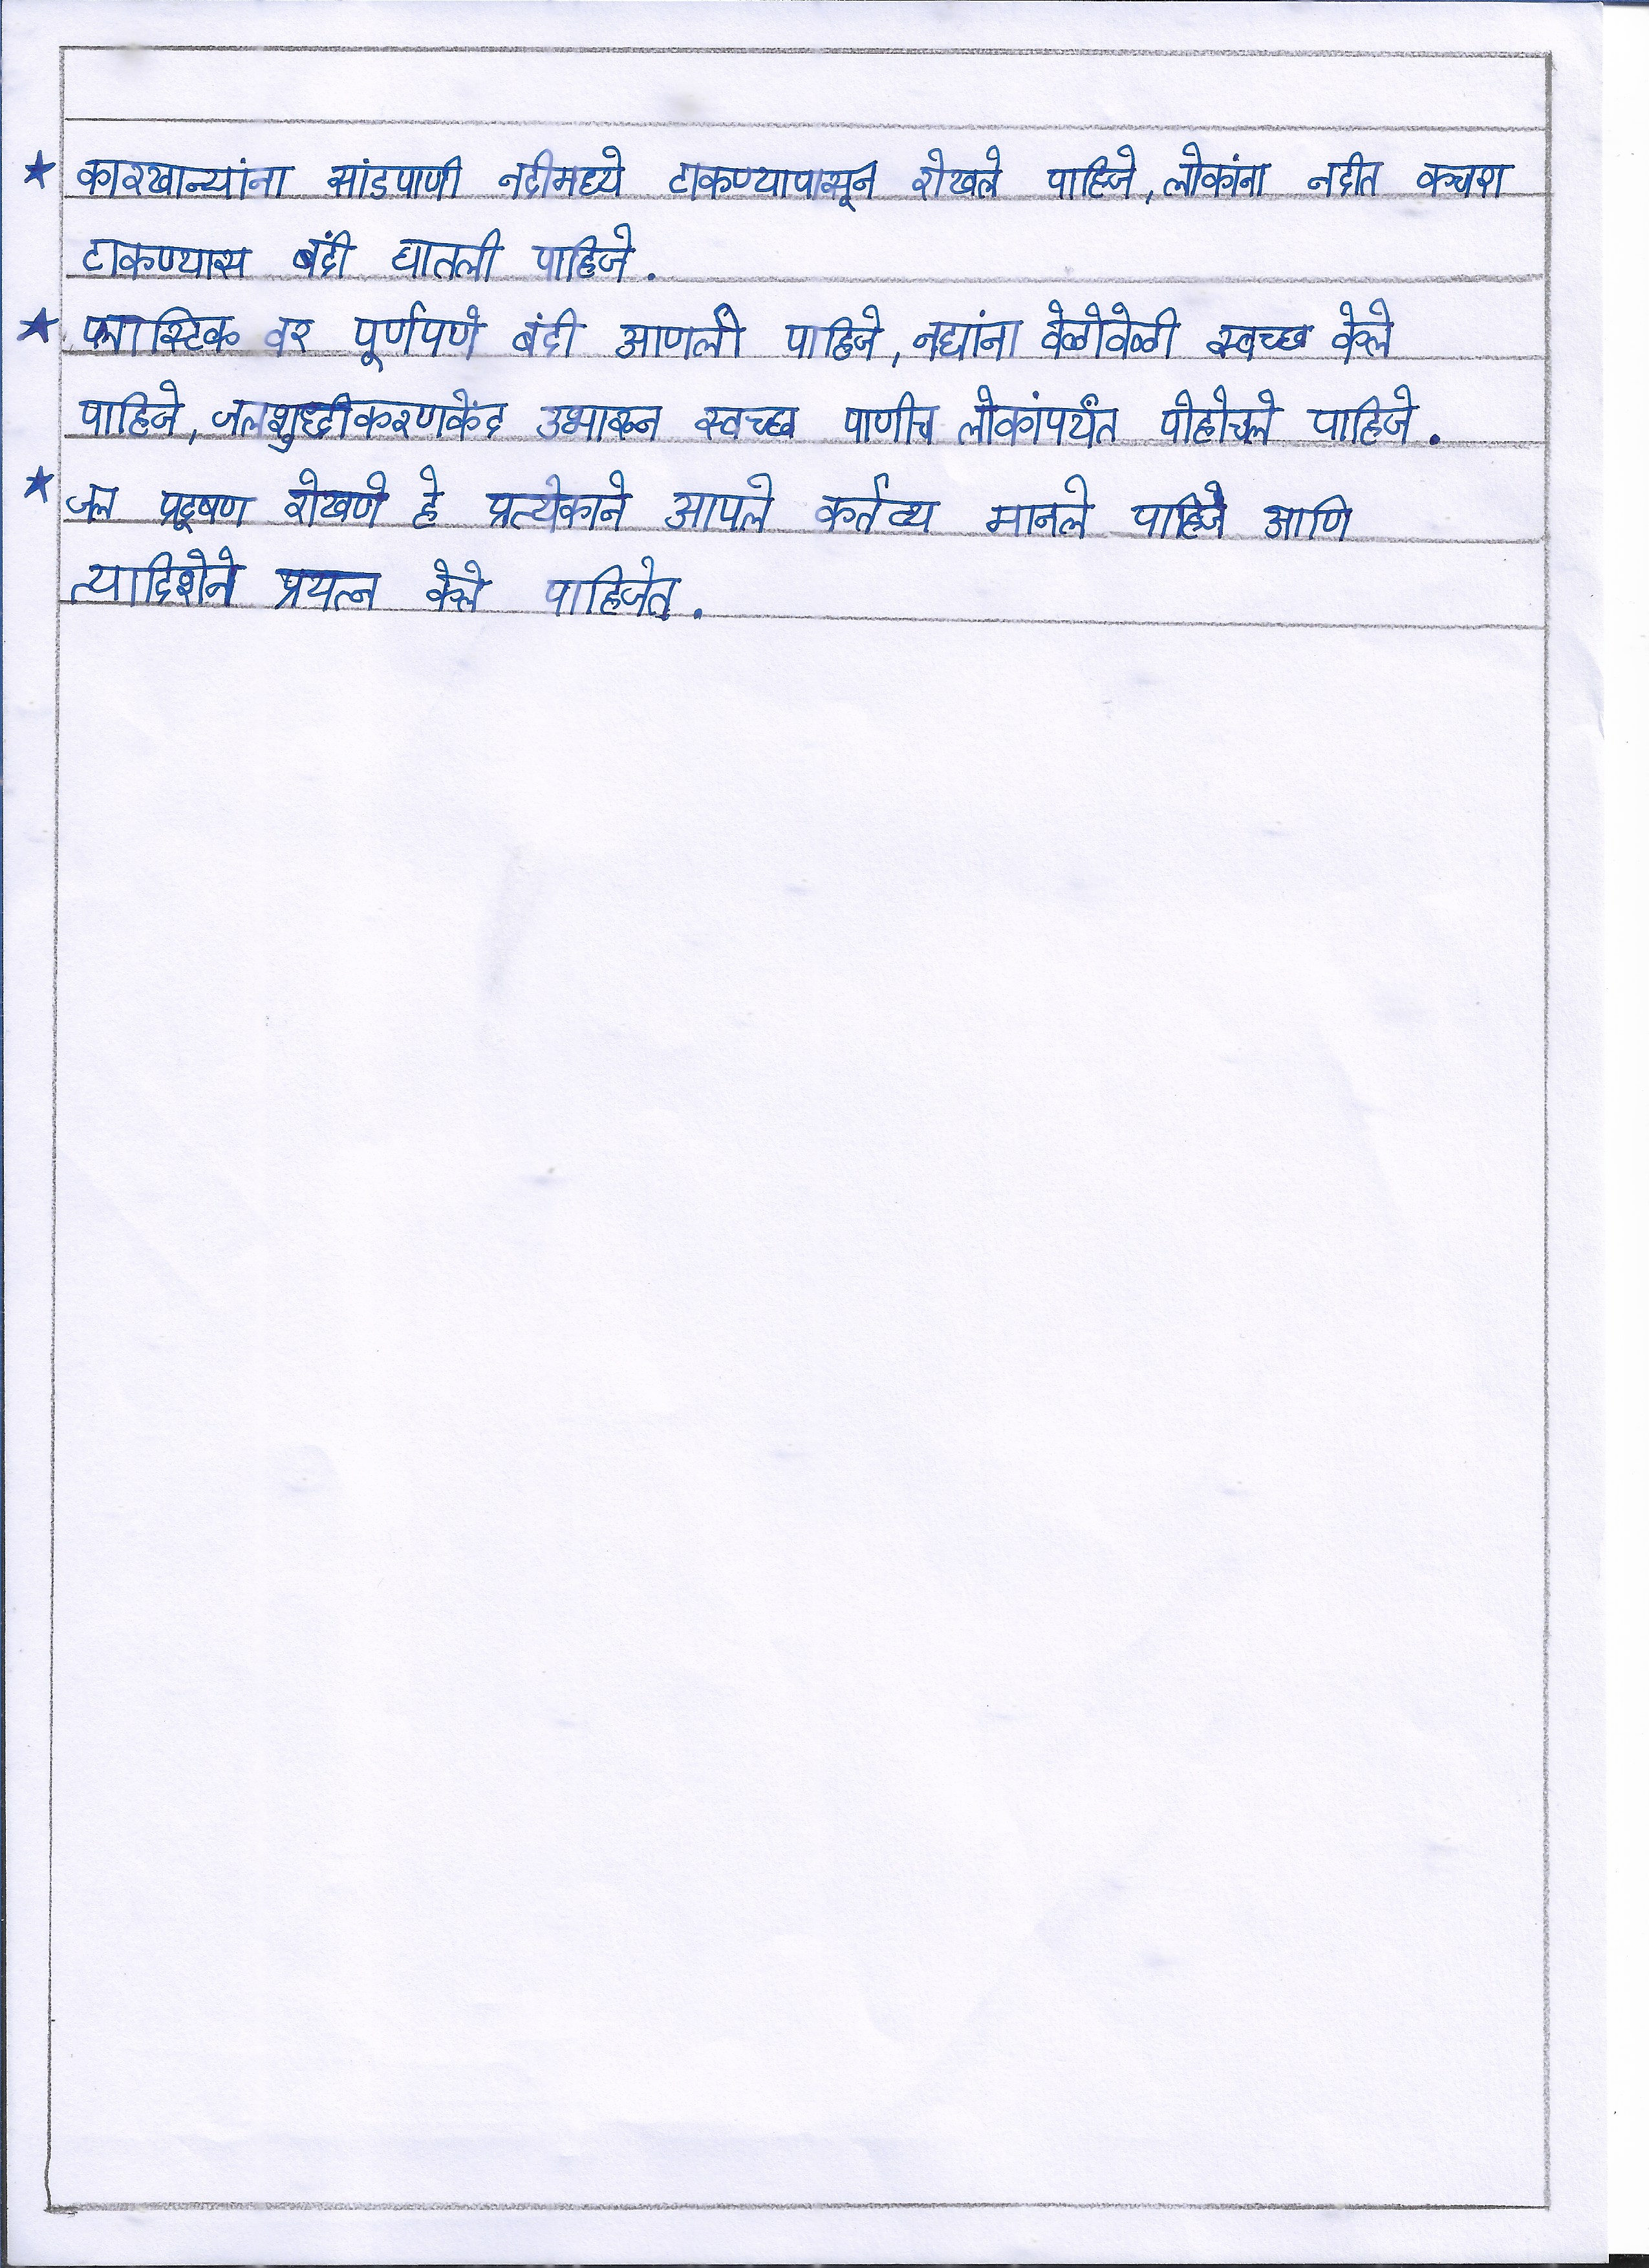 ★ कारखान्यांना सांडपाणी नदीमध्ये टाकण्यापासून रोखले पाहिजे, लोकांना नदीत कचरा
टाकण्यास बंदी घातली पाहिजे.
★ प्लास्टिक वर पूर्णपणे बंदी आणली पाहिजे, नद्यांना वेळोवेळी स्वच्छ केले
पाहिजे, जलशुध्दीकरणकेंद्र उभारून स्वच्छ पाणीच लोकांपर्यंत पोहोचले पाहिजे.
★ जल प्रदूषण रोखणे हे प्रत्येकाने आपले कर्तव्य मानले पाहिजे आणि
त्यादिशेने प्रयत्न केले पाहिजेत.